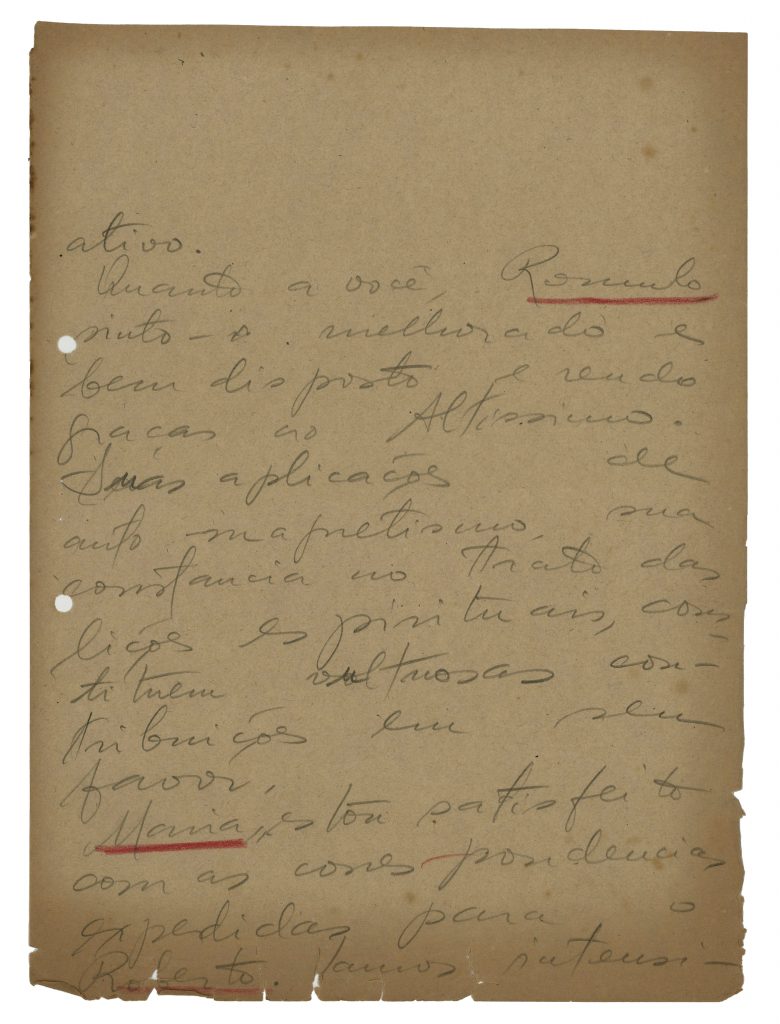 ativo.
Quanto a você, Romulo
sinto-o melhorado e
bem disposto e rendo
graças ao Altissimo.
Suas aplicações de
auto magnetismo, sua
constancia no trato das
lições espirituais, cons-
tituem vultuosas con-
tribuições em seu
favor.
Maria, estou satisfeito
com as correspondencias
expedidas para o
Roberto. Vamos intensi-